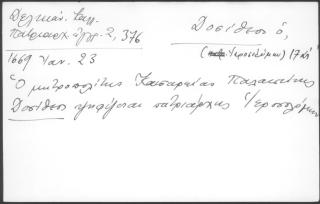 Δελικάν. Καπ.
Πατριαρχ. ἔγγρ. 2, 376
Δοσίθεος ὁ,
(Ἱεροσολύμων) 17 αἰ.
1669 Ἰαν. 23
Ὁ μητροπολίτης Καισαρείας Παλαιστίνης
Δοσίθεος ψηφίζεται πατριάρχης Ἱεροσολύμων